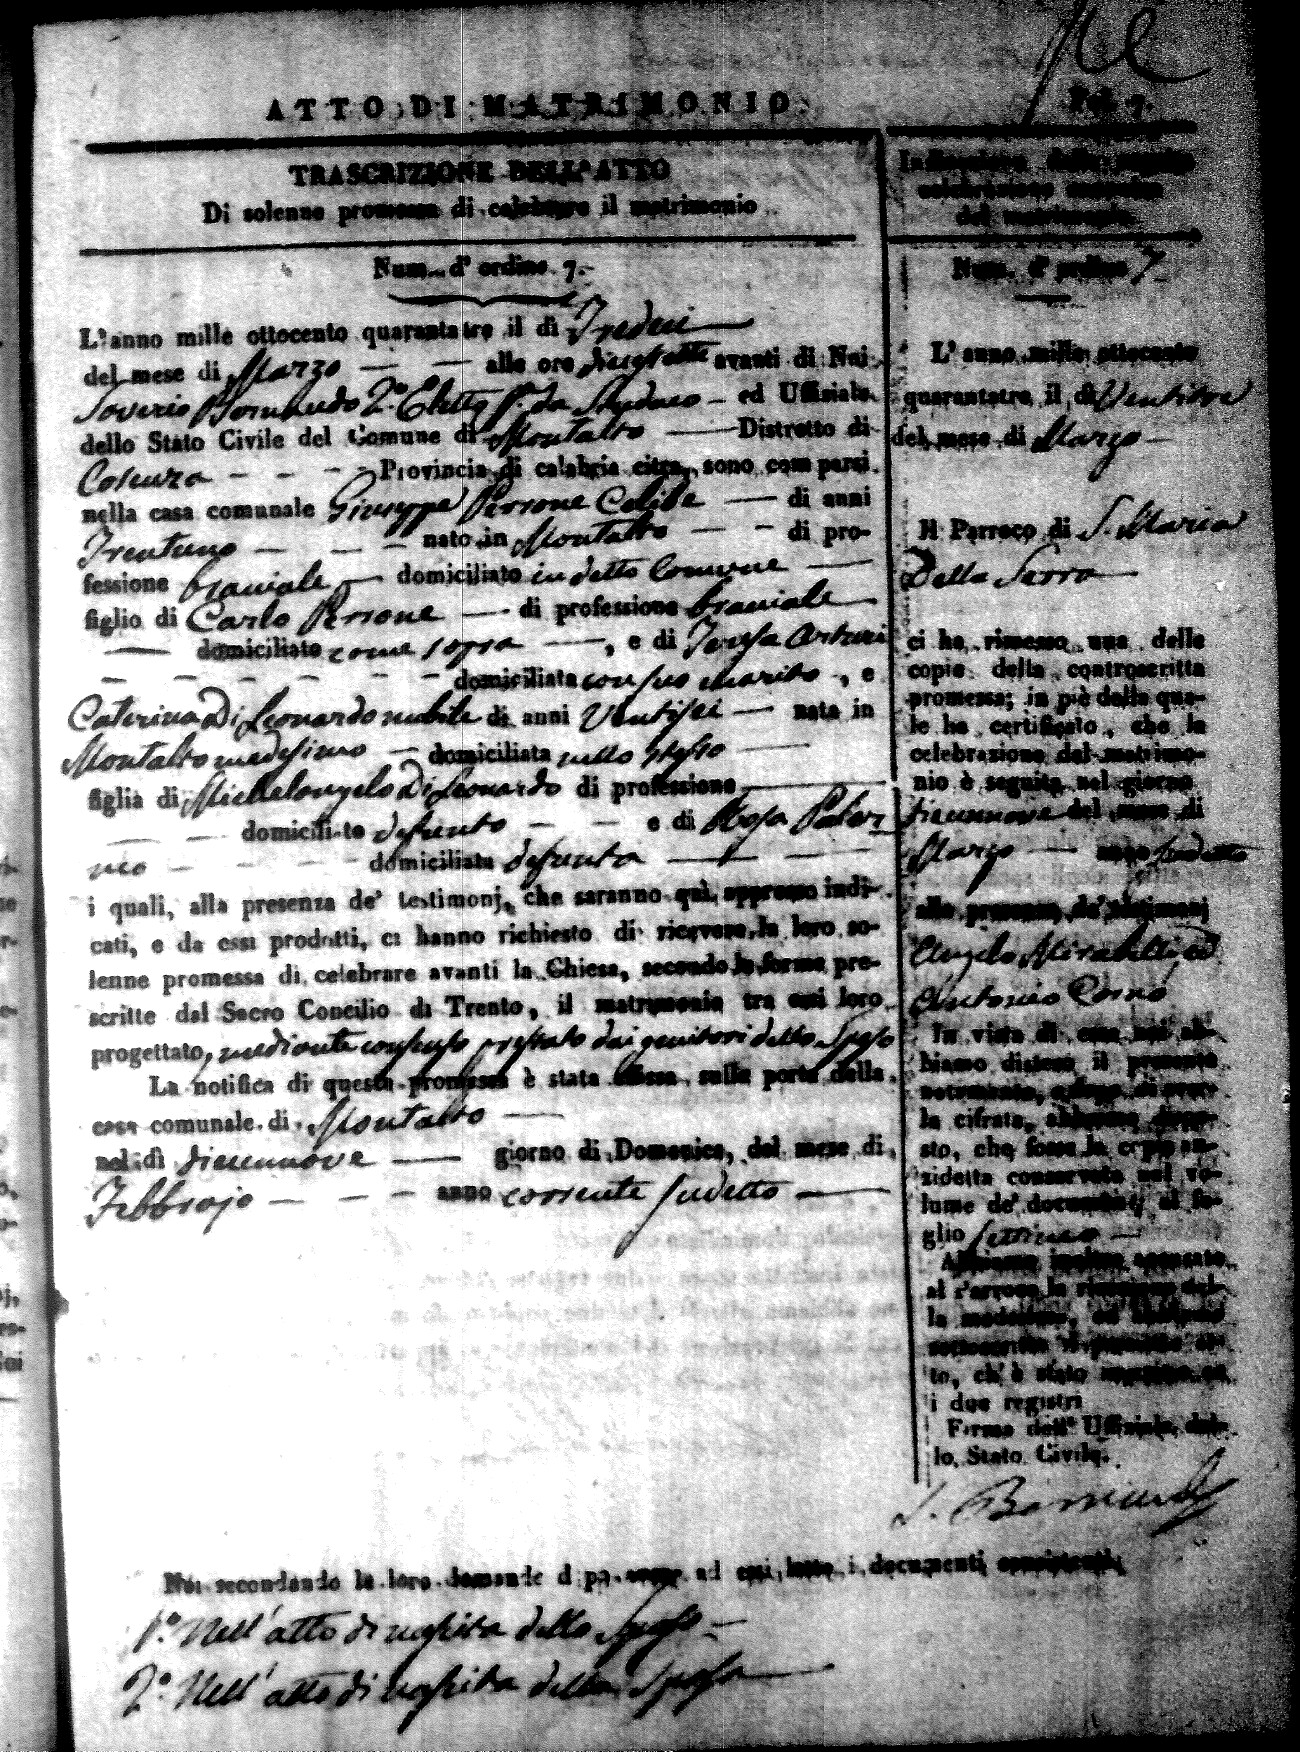 ATTO DI MATRIMONIO
Fol. 7.
TRASCRIZIONE DELL'ATTO
Di solenne promessa di celebrare il matrimonio
Num. d'ordine 7.
L'anno mille ottocento quarantatre il di Tredeci
del mese di Marzo alle ore avanti di Noi
Saverio Bernardo 2.º Eletto ff. da Sindaco ed Uffiziale
dello Stato Civile del Comune di Montalto Distretto di
Cosenza Provincia di calabria citra, sono comparsi
nella casa comunale Giuseppe Perrone Celibe di anni
Trentuno nato in Montalto di pro-
fessione braciale domiciliato in detto Comune
figlio di Carlo Perrone di professione braciale
domiciliato come sopra , e di Teresa Arturi
domiciliata con suo marito , e
Caterina Di Leonardo nubile di anni Ventisei nata in
Montalto medesimo domiciliata nello stesso
figlia di Michelangelo Di Leonardo di professione
domiciliato defunto e di Rosa Pater
no domiciliata defunta
i quali, alla presenza de' testimonj, che saranno quì appresso indi-
cati, e da essi prodotti, ci hanno richiesto di ricevere la loro so-
lenne promessa di celebrare avanti la Chiesa, secondo le forme pre-
scritte dal Sacro Concilio di Trento, il matrimonio tra essi loro
progettato, mediante consenso prestato dai genitori dello Sposo
La notifica di questa promessa è stata affissa sulla porta della
casa comunale di Montalto
nel dì diciannove giorno di Domenica, del mese di
Febbrajo anno corrente sudetto
Noi secondando la loro domanda d po aver ad essi letto i documenti consistenti
1.º Nell'atto di nascita dello Sposo
2.º Nell'atto di nascita della Sposa
Indicazione della seguita
celebrazione
del matrimonio.
Num. d'ordine 7
L'anno mille ottocento
quarantatre il dì Ventitre
del mese di Marzo
Il Parroco di S. Maria
Della Serra
ci ha rimesso una delle
copie della controscritta
promessa; in piè della qua-
le ha certificato, che la
celebrazione del matrimo-
nio è seguita nel giorno
diciannove del mese di
Marzo anno sudetto
alla presenza de' testimonj
Angelo Mirabelli, ed
Antonio Comò
In vista di essa noi ab-
biamo disteso il presente
notamento, e dopo di aver-
la cifrata, abbiamo dispo-
sto, che fosse la copia an-
zidetta conservata nel vo-
lume de' documenti al fo-
glio settimo
Abbiamo inoltre accusato
al Parroco la ricezione del-
la medesima, ed abbiamo
sottoscritto il presente at-
to, ch' è stato su
i due registri
Firma dell' Uffiziale del-
lo Stato Civile.
S. Bernardo